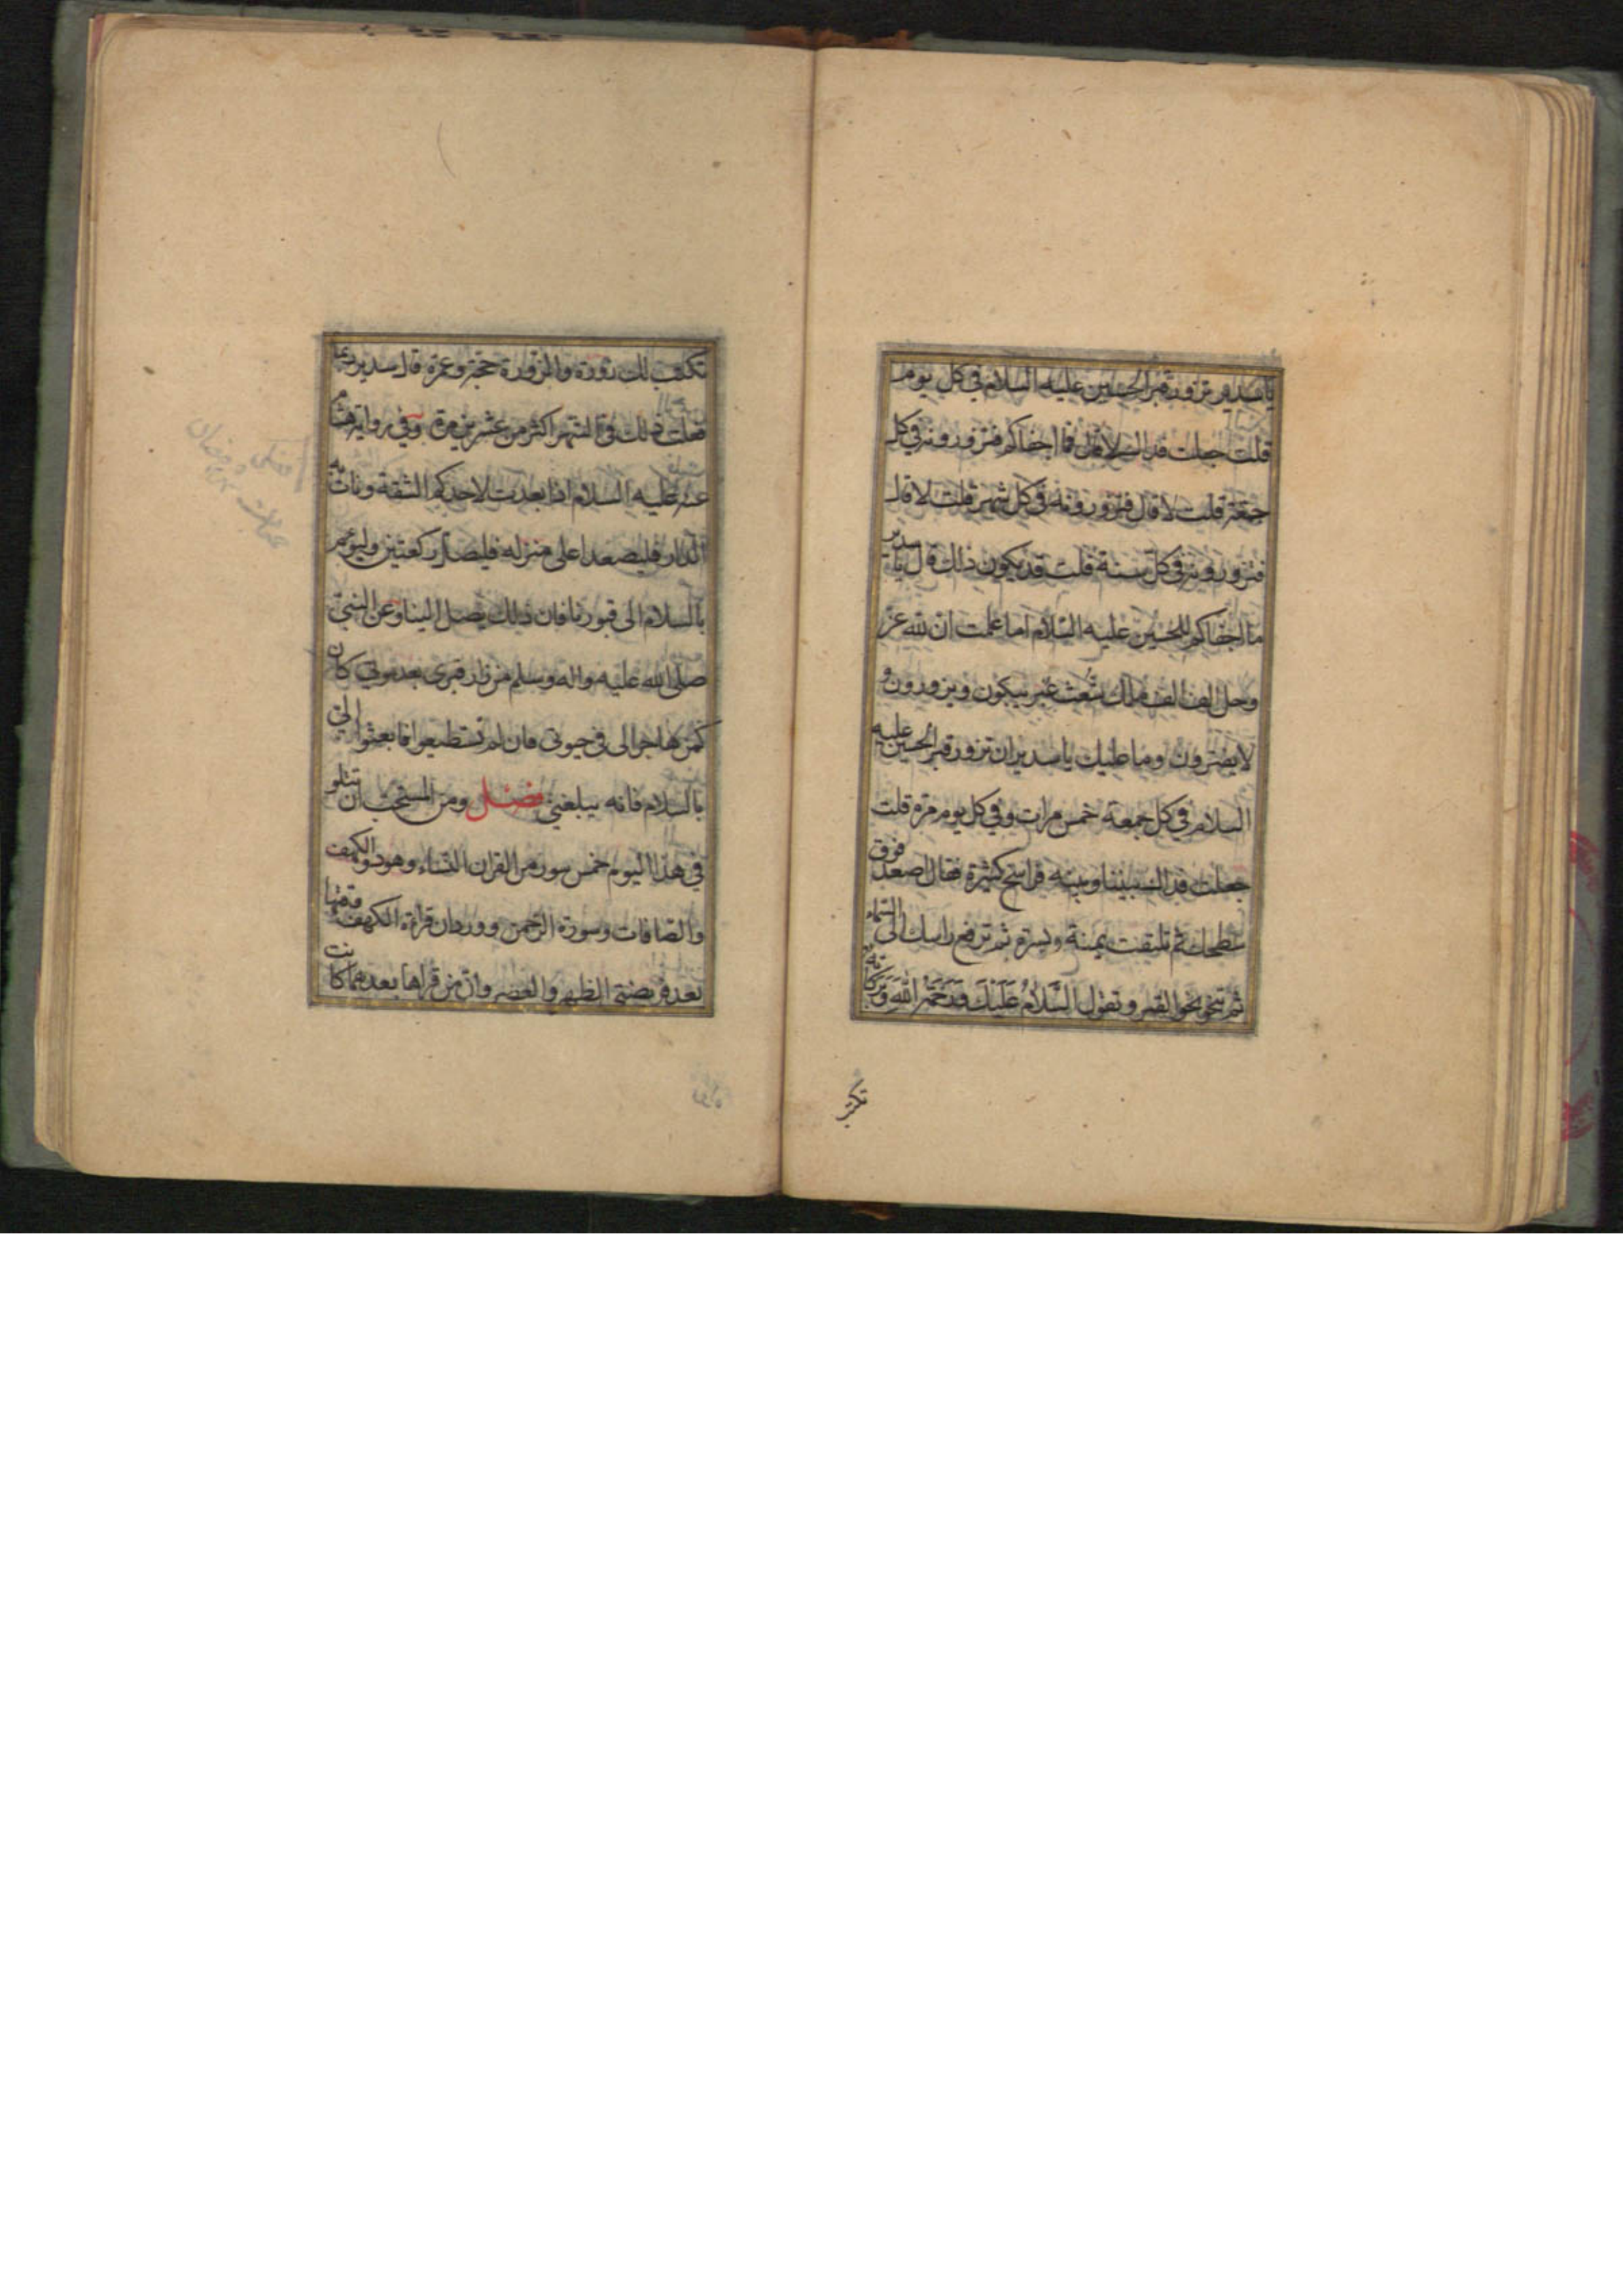 يا سدير تزور قبر الحسين عليه السلام في كل يوم
قلت جعلت فداك لا قال فما اجفاكم فتزورونه في كل
جمعة قلت لا قال فتزورونه في كل شهر قلت لا قال
فتزورونه في كل سنة قلت قد يكون ذلك قال يا سدير
ما اجفاكم للحسين عليه السلام اما علمت ان لله عز
وجل الف الف ملك شعث غبر يبكون ويزورون و
لا يفترون وما عليك يا سدير ان تزور قبر الحسين عليه
السلام في كل جمعة خمس مرات وفي كل يوم مرة قلت
جعلت فداك بيننا وبينه فراسخ كثيرة فقال اصعد فوق
سطحك ثم تلتفت يمنة ويسرة ثم ترفع راسك الى السماء
ثم تنحو نحو القبر وتقول اَلسَّلامُ عَلَيْكَ وَرَحْمَةُ اللّٰهِ وَبَرَكاتُهُ
تكتب
تكتب لك زورة والزورة حجة وعمرة قال سدير ربما
فعلت ذلك في الشهر اكثر من عشرين مرة وفي رواية هشام
عنه عليه السلام اذا بعدت لاحدكم الشقة ونات به
الدار فليصعد اعلى منزله فليصل ركعتين وليوم
بالسلام الى قبورنا فان ذلك يصل الينا وعن النبي
صلى الله عليه واله وسلم من زار قبري بعد موتي كان
كمن هاجر الى في حيوتي فان لم تستطيعوا فابعثوا الي
بالسلام فانه يبلغني فصل ومن المستحب ان تتلو
في هذا اليوم خمس سور من القران النساء وهود والكهف
والصافات وسورة الرحمن وورد ان قراءة الكهف
بعد فريضتي الظهر والعصر وان من قراها بعدهما كانت